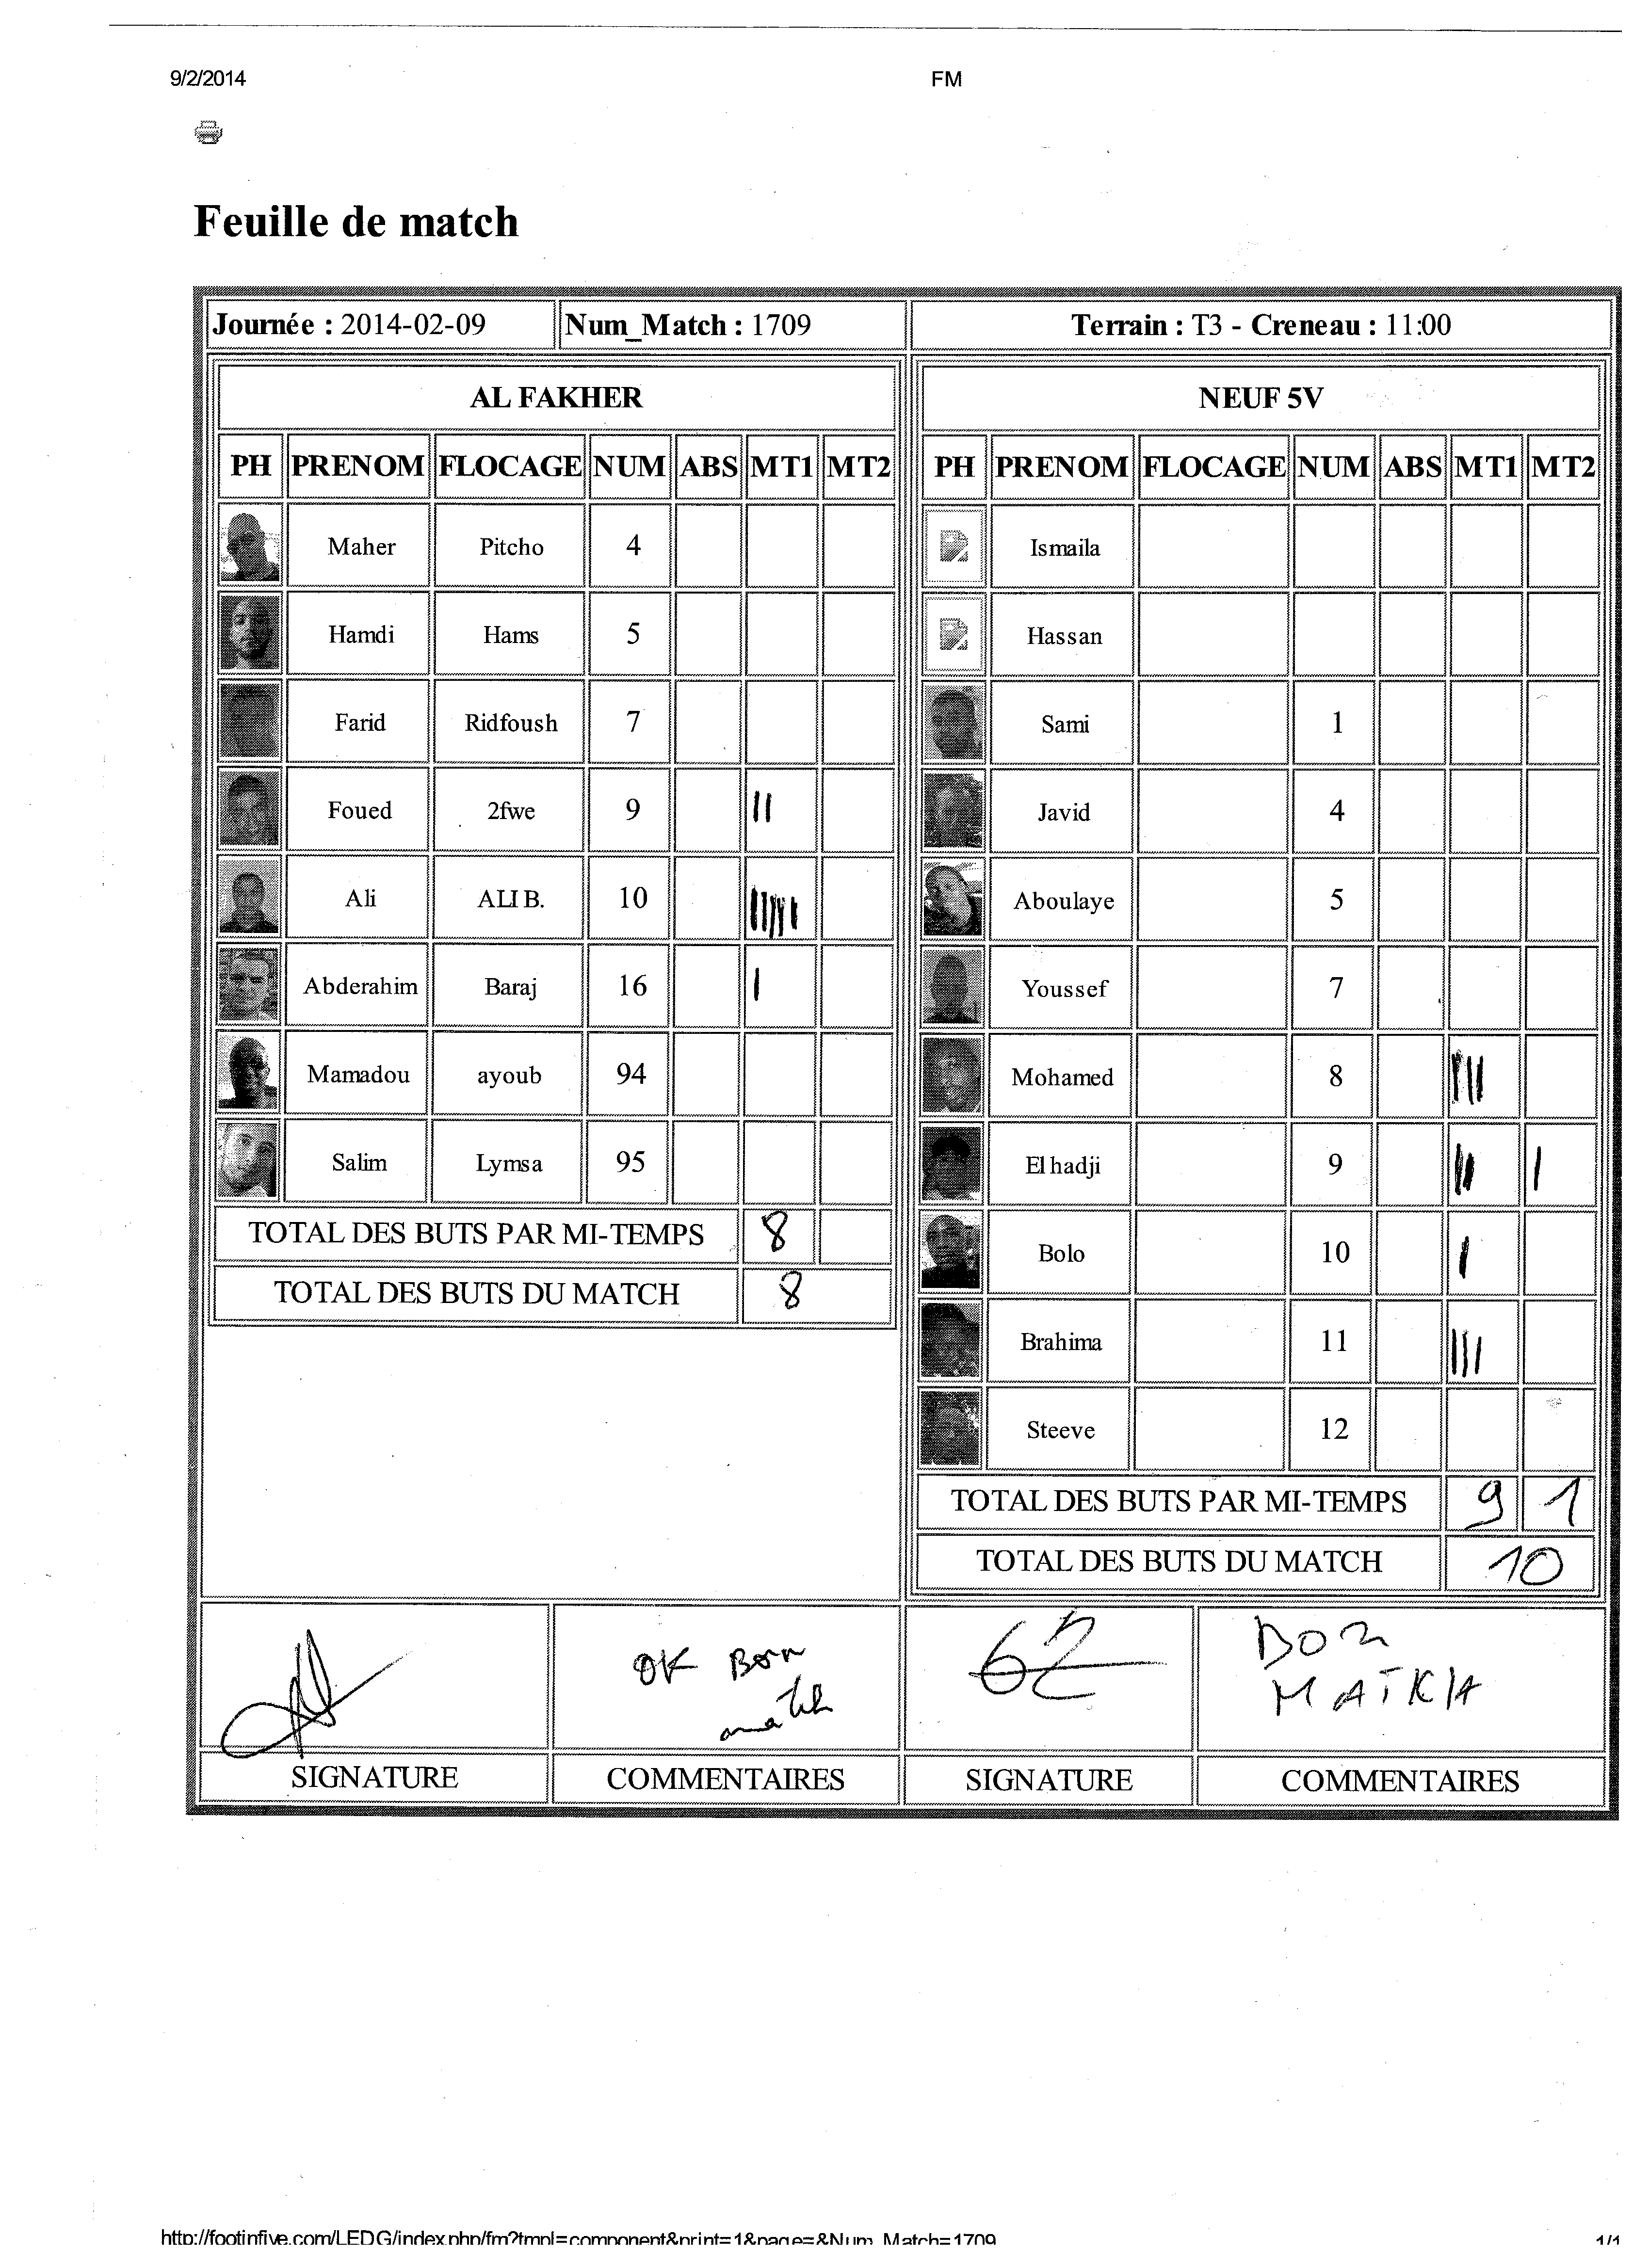 9/2/2014 FM
Feuille de match
Journée : 2014-02-09 Num_Match : 1709 Terrain : T3 - Creneau : 11:00
AL FAKHER
PH PRENOM FLOCAGE NUM ABS MT1 MT2
Maher Pitcho 4
Hamdi Hams 5
Farid Ridfoush 7
Foued 2fwe 9 ||
Ali ALI B. 10 |||||
Abderahim Baraj 16 |
Mamadou ayoub 94
Salim Lymsa 95
TOTAL DES BUTS PAR MI-TEMPS 8
TOTAL DES BUTS DU MATCH 8
NEUF 5V
PH PRENOM FLOCAGE NUM ABS MT1 MT2
Ismaila
Hassan
Sami 1
Javid 4
Aboulaye 5
Youssef 7
Mohamed 8 |||
El hadji 9 || |
Bolo 10 |
Brahima 11 |||
Steeve 12
TOTAL DES BUTS PAR MI-TEMPS 9 1
TOTAL DES BUTS DU MATCH 10
OK Bon
match
BON
MATKH
SIGNATURE COMMENTAIRES SIGNATURE COMMENTAIRES
http://footinfive.com/LEDG/index.php/fm?tmpl=component&print=1&page=&Num_Match=1709 1/1